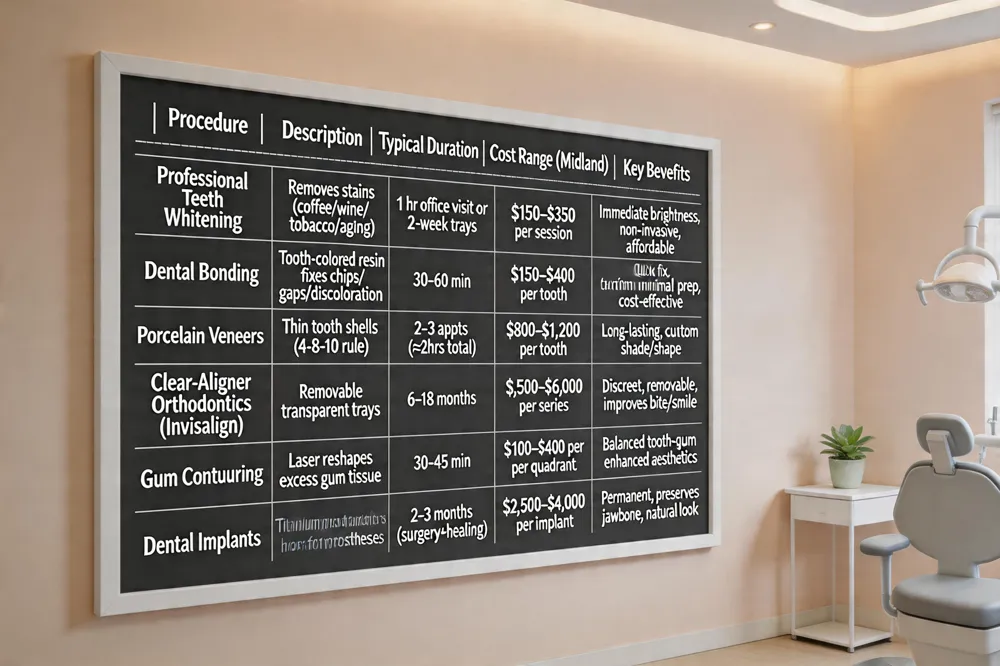 Procedure | Description | Typical Duration | Cost Range (Midland) | Key Benefits
Professional
Teeth
Whitening
Removes stains
(coffee/wine/
tobacco/aging)
1 hr office visit or
2-week trays
$150–$350
per session
Immediate brightness,
non-invasive,
affordable
Dental Bonding
Tooth-colored resin
fixes chips/
gaps/discoloration
30–60 min
$150–$400
per tooth
fix,
prep,
cost-effective
Porcelain Veneers
Thin tooth shells
(4-8-10 rule)
2–3 appts
(≈2hrs total)
$800–$1,200
per tooth
Long-lasting, custom
shade/shape
Clear-Aligner
Orthodontics
(Invisalign)
Removable
transparent trays
6–18 months
$,500–$6,000
per series
Discreet, removable,
improves bite/smile
Gum Contuuring
Laser reshapes
excess gum tissue
30–45 min
$100–$400 per
per quadrant
Balanced tooth-gum
enhanced aesthetics
Dental Implants
2–3 months
(surgery+healing)
$2,500–$4,000
per implant
Permanent, preserves
jawbone, natural look